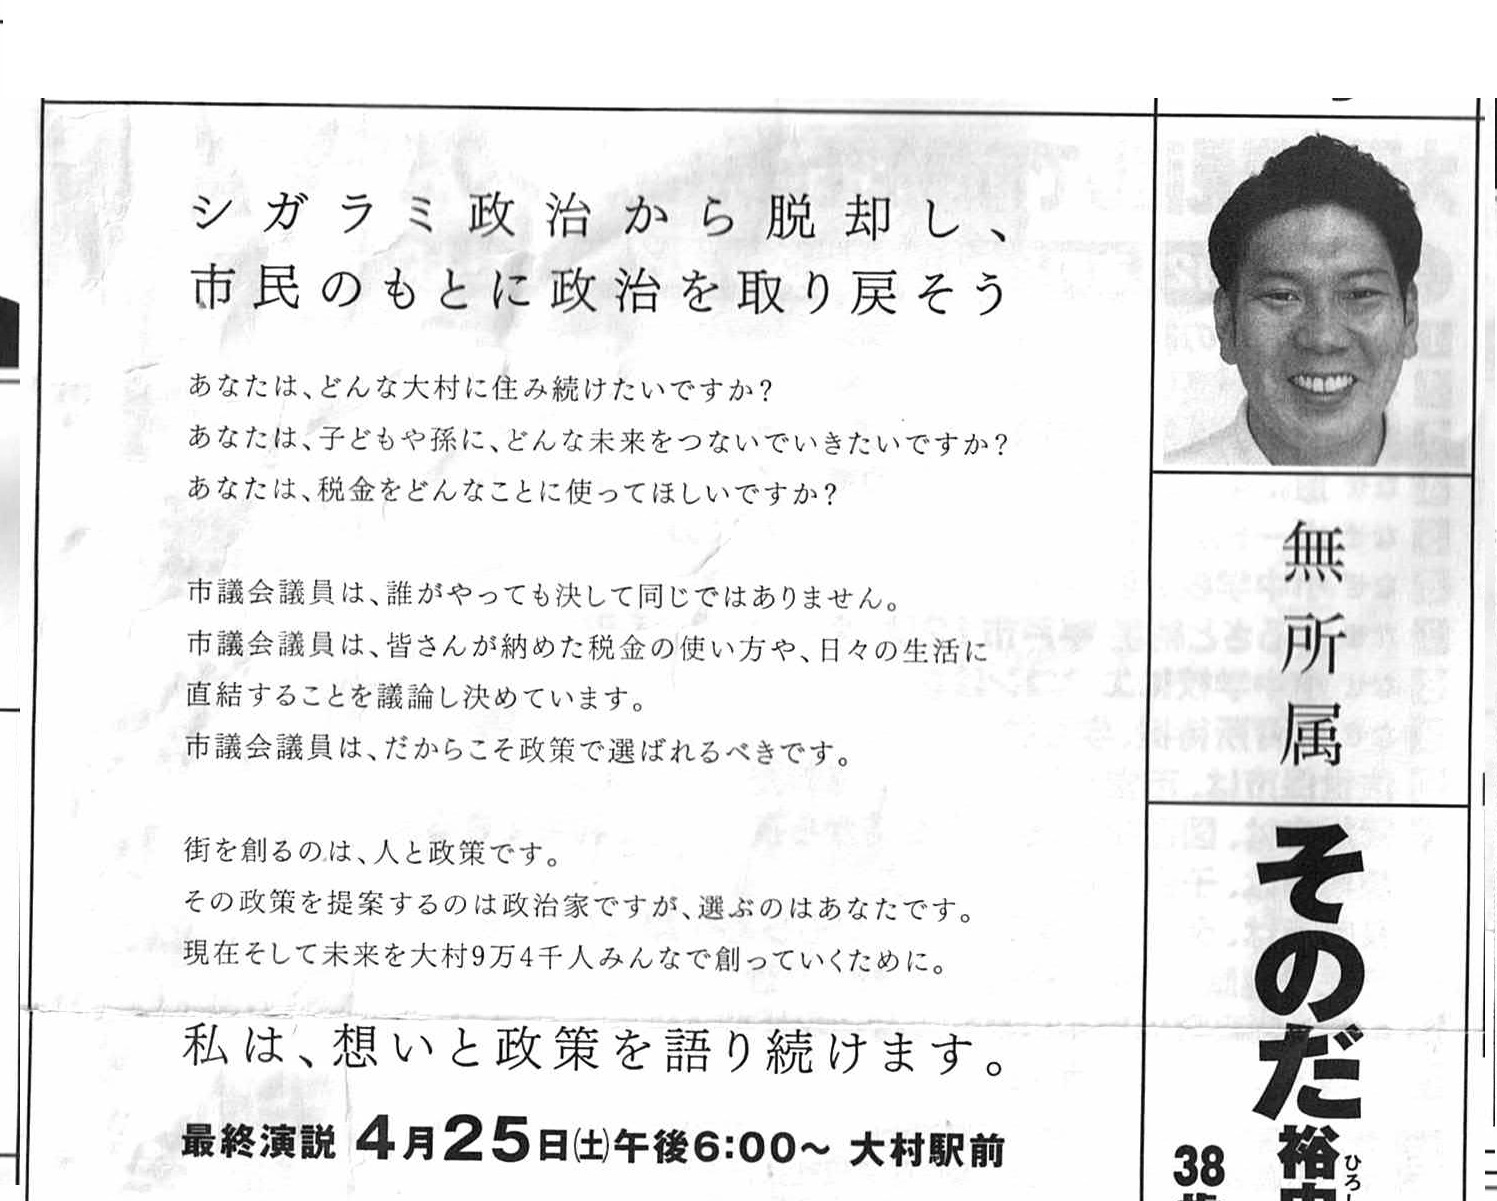 シガラミ政治から脱却し、
市民のもとに政治を取り戻そう
あなたは、どんな大村に住み続けたいですか？
あなたは、子どもや孫に、どんな未来をつないでいきたいですか？
あなたは、税金をどんなことに使ってほしいですか？
市議会議員は、誰がやっても決して同じではありません。
市議会議員は、皆さんが納めた税金の使い方や、日々の生活に
直結することを議論し決めています。
市議会議員は、だからこそ政策で選ばれるべきです。
街を創るのは、人と政策です。
その政策を提案するのは政治家ですが、選ぶのはあなたです。
現在そして未来を大村9万4千人みんなで創っていくために。
私は、想いと政策を語り続けます。
最終演説 4月25日㈯午後6:00〜 大村駅前
無所属
そのだ
裕
ひろ
38